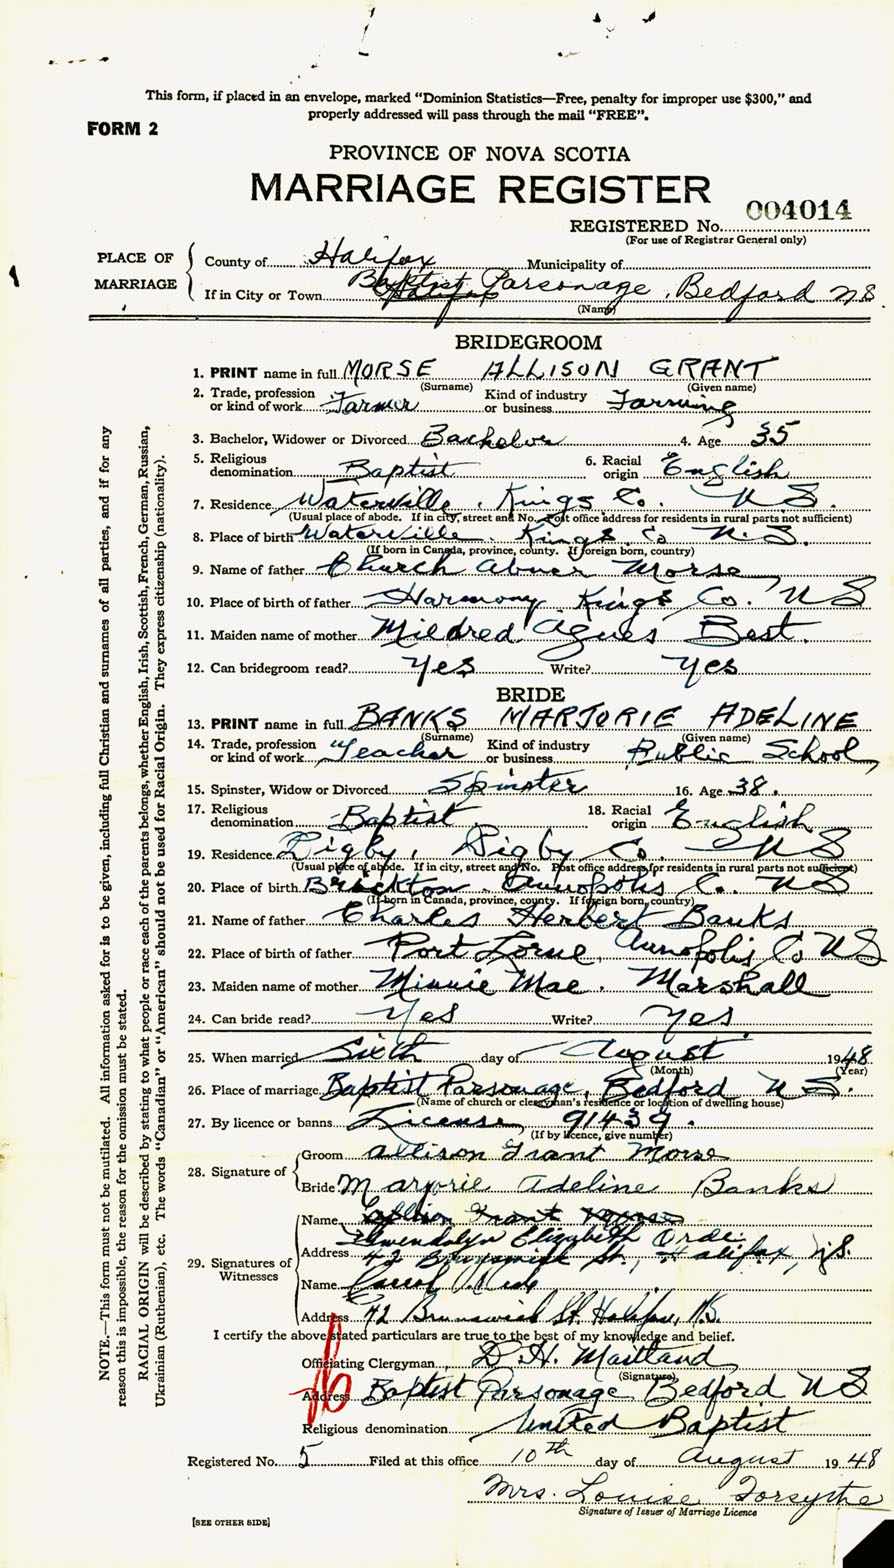 This form, if placed in an envelope, marked "Dominion Statistics—Free, penalty for improper use $300," and
properly addressed will pass through the mail "FREE".
FORM 2
PROVINCE OF NOVA SCOTIA
MARRIAGE REGISTER
REGISTERED No. 004014
(For use of Registrar General only)
PLACE OF MARRIAGE
County of Halifax Municipality of
If in City or Town Halifax Baptist Parsonage, Bedford N S
(Name)
BRIDEGROOM
1. PRINT name in full MORSE ALLISON GRANT
(Surname) (Given name)
2. Trade, profession or kind of work Farmer Kind of industry or business Farming
3. Bachelor, Widower or Divorced Bachelor 4. Age 35
5. Religious denomination Baptist 6. Racial origin English
7. Residence Waterville, Kings Co. N S.
(Usual place of abode. If in city, street and No. Post office address for residents in rural parts not sufficient)
8. Place of birth Waterville. Kings Co N.S.
(If born in Canada, province, county. If foreign born, country)
9. Name of father Church Abner Morse
10. Place of birth of father Harmony Kings Co. N S
11. Maiden name of mother Mildred Agnes Best.
12. Can bridegroom read? Yes Write? Yes
BRIDE
13. PRINT name in full BANKS MARJORIE ADELINE
(Surname) (Given name)
14. Trade, profession or kind of work Teacher Kind of industry or business Public School
15. Spinster, Widow or Divorced Spinster 16. Age 38.
17. Religious denomination Baptist 18. Racial origin English
19. Residence Digby, Digby Co. N S
(Usual place of abode. If in city, street and No. Post office address for residents in rural parts not sufficient)
20. Place of birth Brickton. Annopolis C. N S
(If born in Canada, province, county. If foreign born, country)
21. Name of father Charles Herbert Banks
22. Place of birth of father Port Lorne, Annopolis Co N S
23. Maiden name of mother Minnie Mae. Marshall
24. Can bride read? Yes Write? Yes
25. When married Sixth day of August 1948
(Month) (Year)
26. Place of marriage Baptist Parsonage, Bedford N S.
(Name of church or clergyman's residence or location of dwelling house)
27. By licence or banns License 91439.
(If by licence, give number)
28. Signature of
Groom Allison Grant Morse
Bride Marjorie Adeline Banks
29. Signatures of Witnesses
Name Allison Grant Morse
Gwendolyn Elizabeth Orde
Address 42 Brunswick St., Halifax, N.S.
Name Orde
Address 72 Brunswick St. Halifax, N.S.
I certify the above stated particulars are true to the best of my knowledge and belief.
Officiating Clergyman D. H. Maitland
(Signature)
Address Baptist Parsonage Bedford N S
Religious denomination United Baptist
Registered No. 5 Filed at this office 10th day of August 1948
Mrs. Louise Forsythe
Signature of Issuer of Marriage Licence
[SEE OTHER SIDE]
NOTE.—This form must not be mutilated. All information asked for is to be given, including full Christian and surnames of all parties, and if for any
reason this is impossible, the reason for the omission must be stated.
RACIAL ORIGIN will be described by stating to what people or race each of the parents belongs, whether English, Irish, Scottish, French, German, Russian,
Ukrainian (Ruthenian), etc. The words "Canadian" or "American" should not be used for Racial Origin. They express citizenship (nationality).